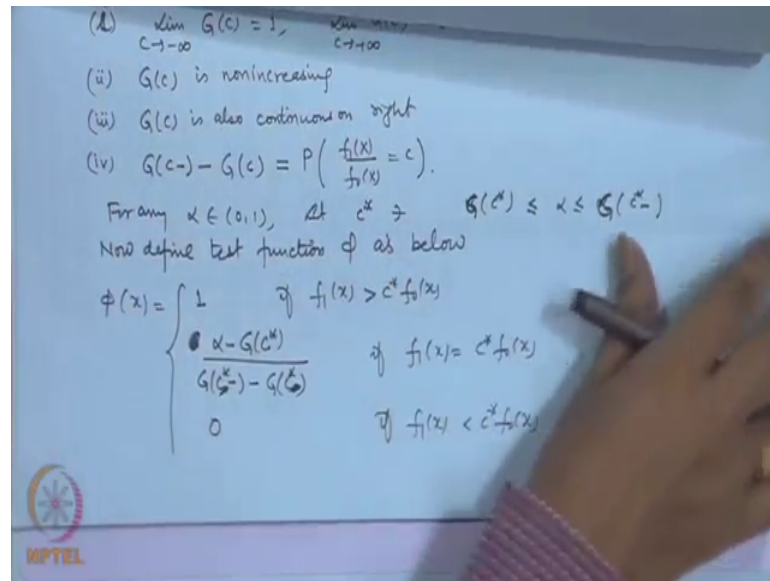 lim G(c) = 1, lim
c→-∞ c→+∞
(ii) G(c) is nonincreasing
(iii) G(c) is also continuous on right
(iv) G(c-) - G(c) = P( f₁(X)/f₀(X) = c ).
For any α ∈ (0,1), let c* ∋ G(c*) ≤ α ≤ G(c*-)
Now define test function ϕ as below
ϕ(x) = { 1 if f₁(x) > c* f₀(x)
(α - G(c*))/(G(c*-) - G(c*)) if f₁(x) = c* f₀(x)
0 if f₁(x) < c* f₀(x)
NPTEL